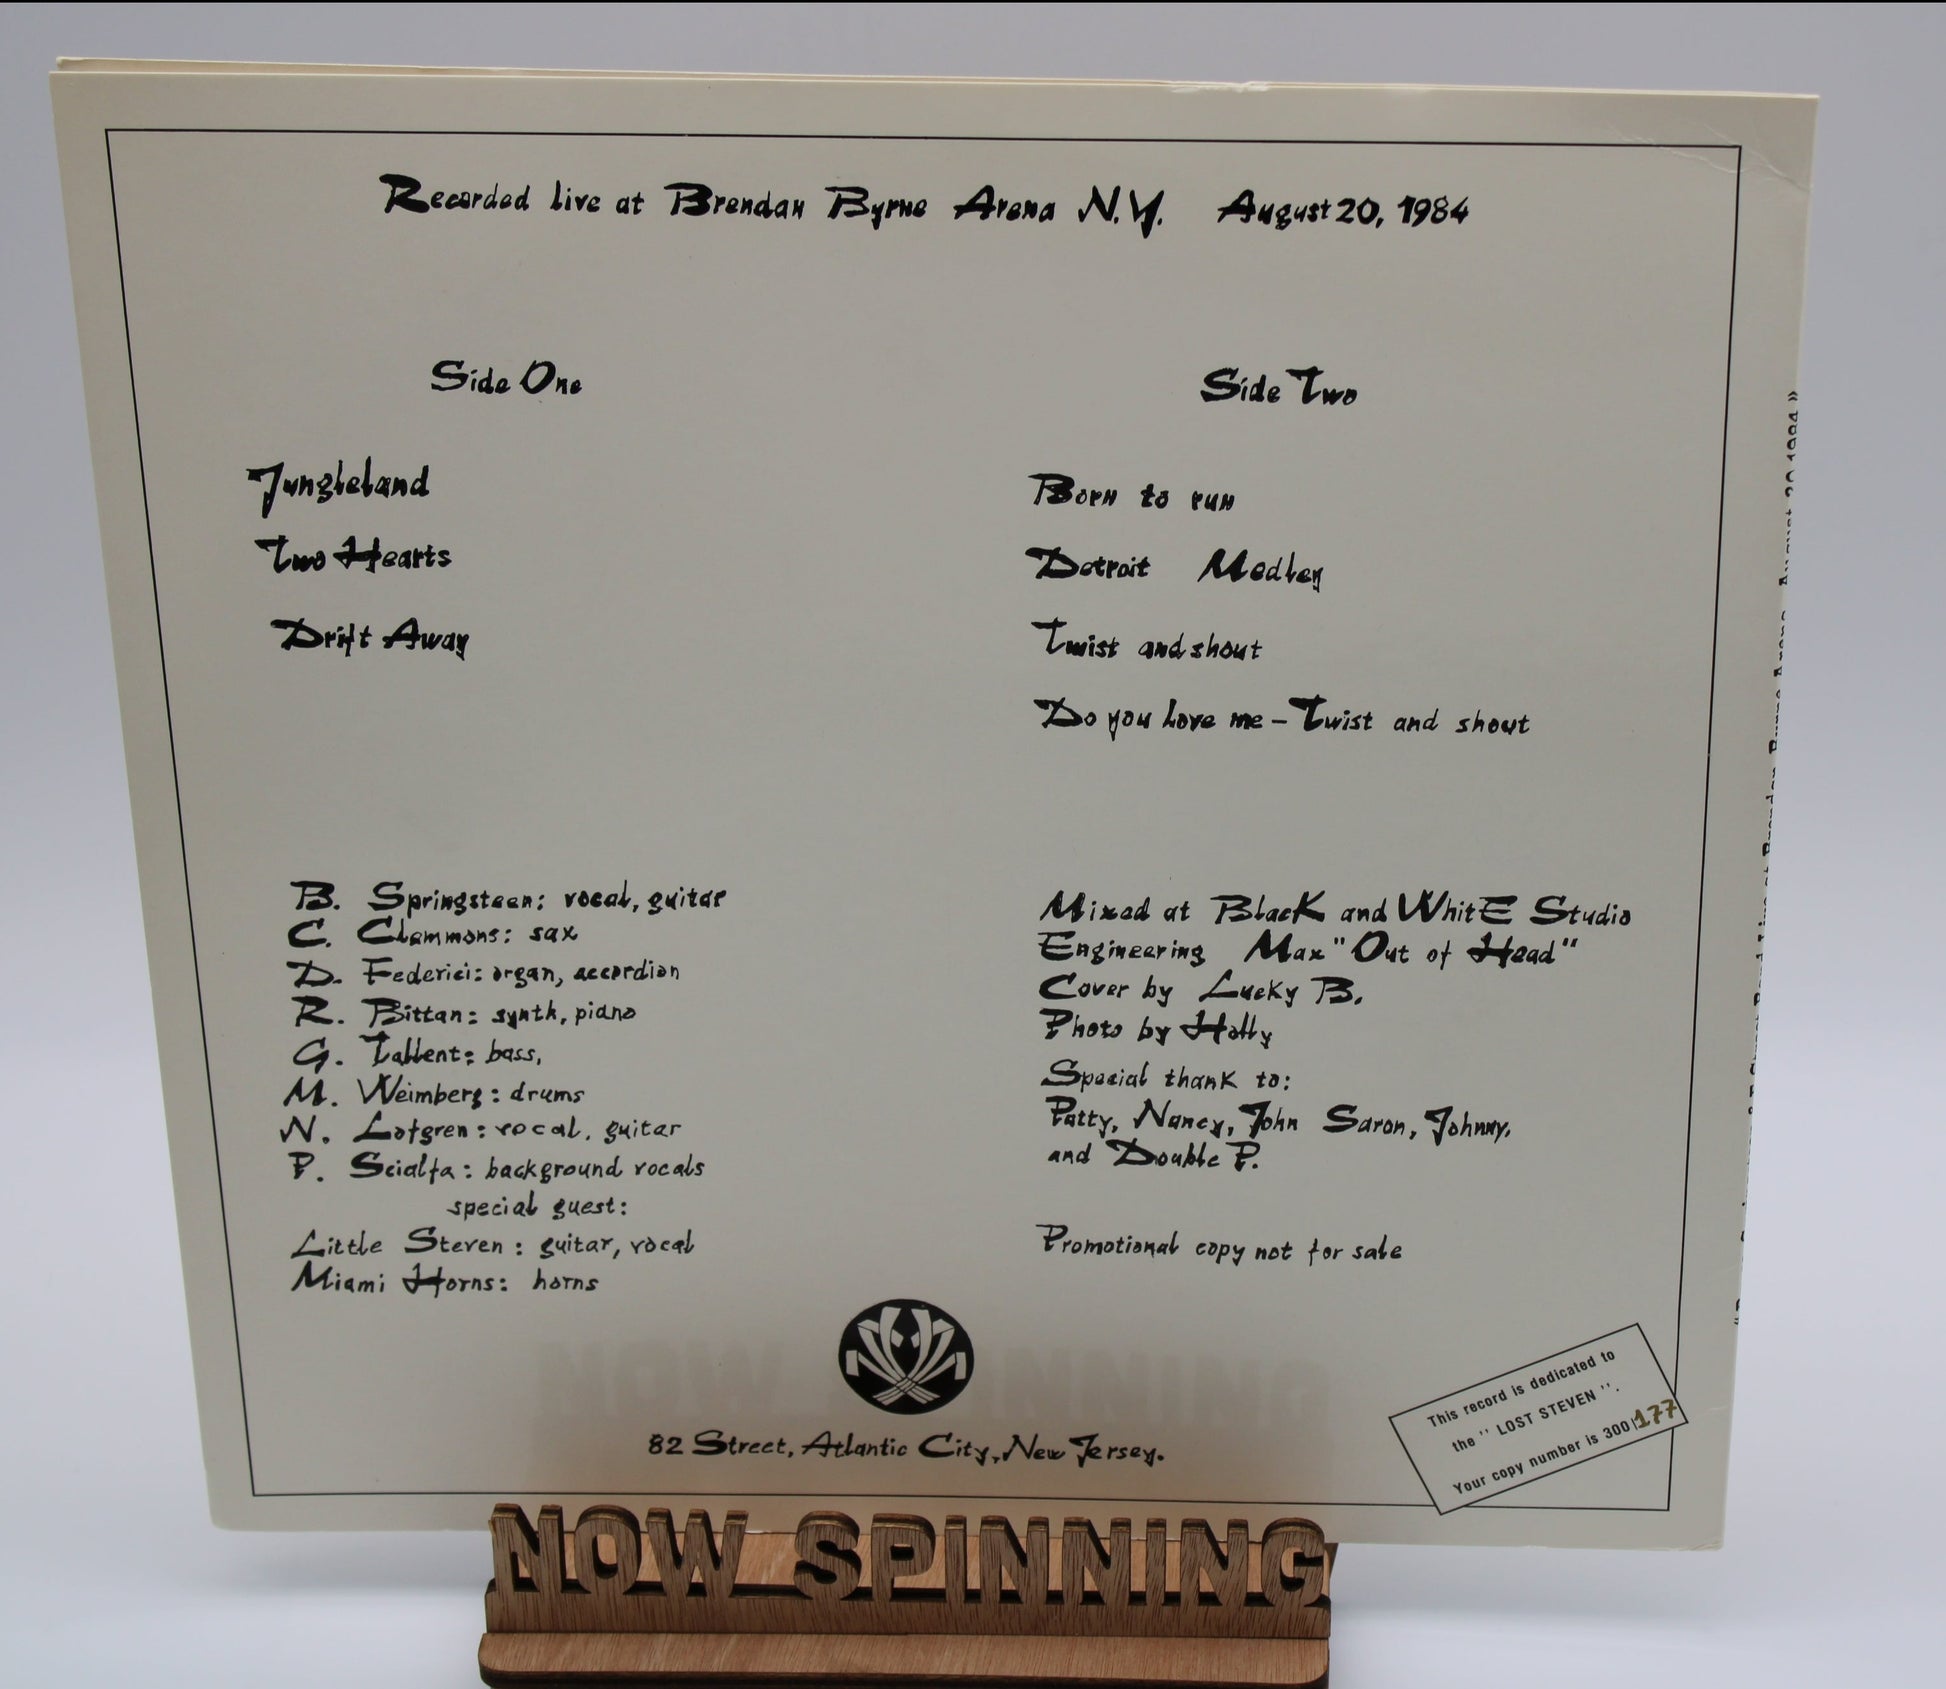 Recorded live at Brendan Byrne Arena N.Y. August 20, 1984
Side One
Jungleland
Two Hearts
Drift Away
Side Two
Born to run
Detroit Medley
Twist and shout
Do you Love me – Twist and shout
B. Springsteen: vocal, guitar
C. Clemmons: sax
D. Federici: organ, accordian
R. Bittan: synth, piano
G. Tallent: bass,
M. Weimberg: drums
N. Lofgren: vocal, guitar
P. Scialfa: background vocals
special guest:
Little Steven: guitar, vocal
Miami Horns: horns
Mixed at BlacK and WhitE Studio
Engineering Max "Out of Head"
Cover by Lucky B.
Photo by Holly
Special thank to:
Patty, Nancy, John Saron, Johnny,
and Double P.
Promotional copy not for sale
82 Street, Atlantic City, New Jersey.
This record is dedicated to
the " LOST STEVEN ".
Your copy number is 300 177
Live at Brendan Byrne Arena August 20 1984 »
NOW SPINNING